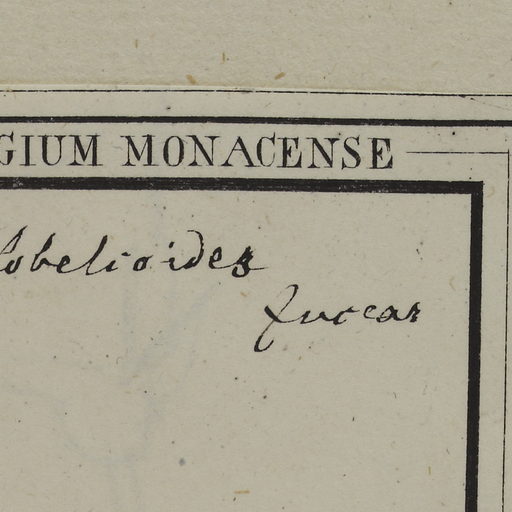 GIUM MONACENSE
lobelioides
Zuccar